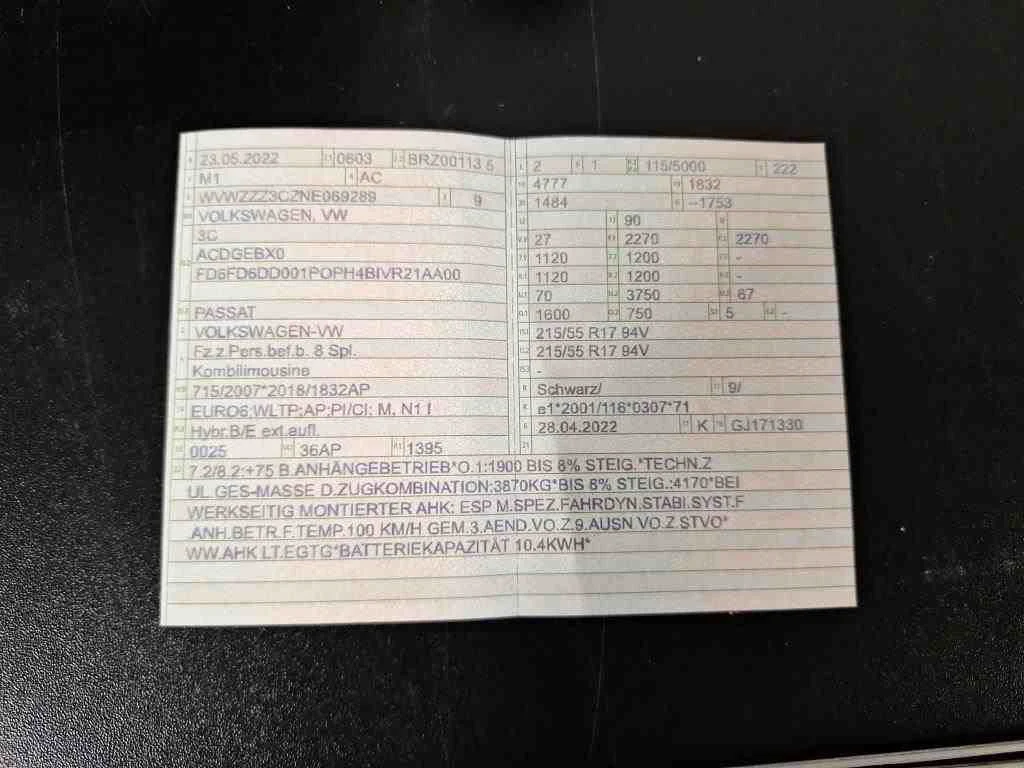 23.05.2022 0603 BRZ00113 5
M1 AC
WVWZZZ3CZNE069289 9
VOLKSWAGEN, VW
3C
ACDGEBX0
FD6FD6DD001POPH4BIVR21AA00
PASSAT
VOLKSWAGEN-VW
Fz.z.Pers.bef.b. 8 Spl.
Kombilimousine
715/2007*2018/1832AP
EURO6;WLTP;AP;PI/CI; M, N1 I
Hybr.B/E ext.aufl.
0025 36AP 1395
2 1 115/5000 222
4777 1832
1484 --1753
90
27 2270 2270
1120 1200 -
1120 1200 -
70 3750 67
1600 750 5 -
215/55 R17 94V
215/55 R17 94V
-
Schwarz/ 9/
e1*2001/116*0307*71
28.04.2022 K GJ171330
7.2/8.2:+75 B.ANHÄNGEBETRIEB*O.1:1900 BIS 8% STEIG.*TECHN.Z
UL.GES-MASSE D.ZUGKOMBINATION:3870KG*BIS 8% STEIG.:4170*BEI
WERKSEITIG MONTIERTER AHK: ESP M.SPEZ.FAHRDYN.STABI.SYST.F
ANH.BETR.F.TEMP.100 KM/H GEM.3.AEND.VO.Z.9.AUSN VO.Z.STVO*
WW.AHK LT.EGTG*BATTERIEKAPAZITÄT 10.4KWH*